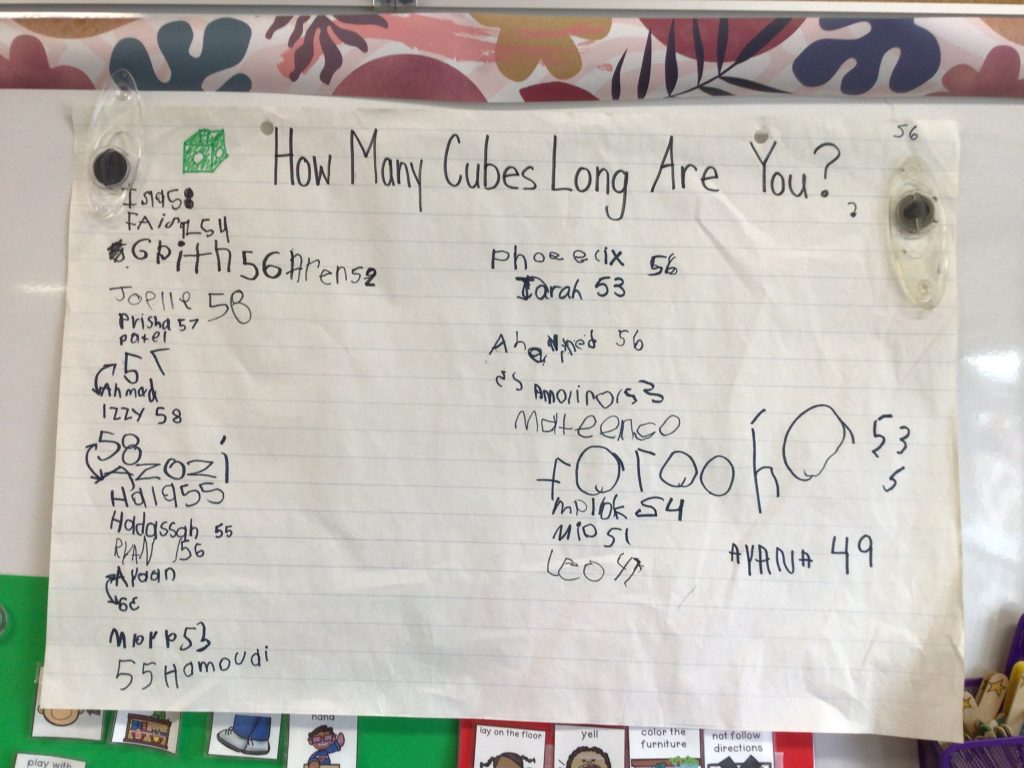 How Many Cubes Long Are You?
56
2
Isra58
FAizL54
Gpith 56 Aren52
Joelle 58
Prisha 57
patel
57
Ahmad
IZZY 58
58
Azozi
Hala55
Hadassah 55
RYAN 56
Ayaan
Marp53
55 Hamoudi
Phoeelix 56
Iarah 53
Ahemned 56
53
Mateenco
farooha 53
5
malak 54
Mio51
LEO 47
AYANA 49
hand
play with
lay on the floor
yell
color the
furniture
not follow
directions